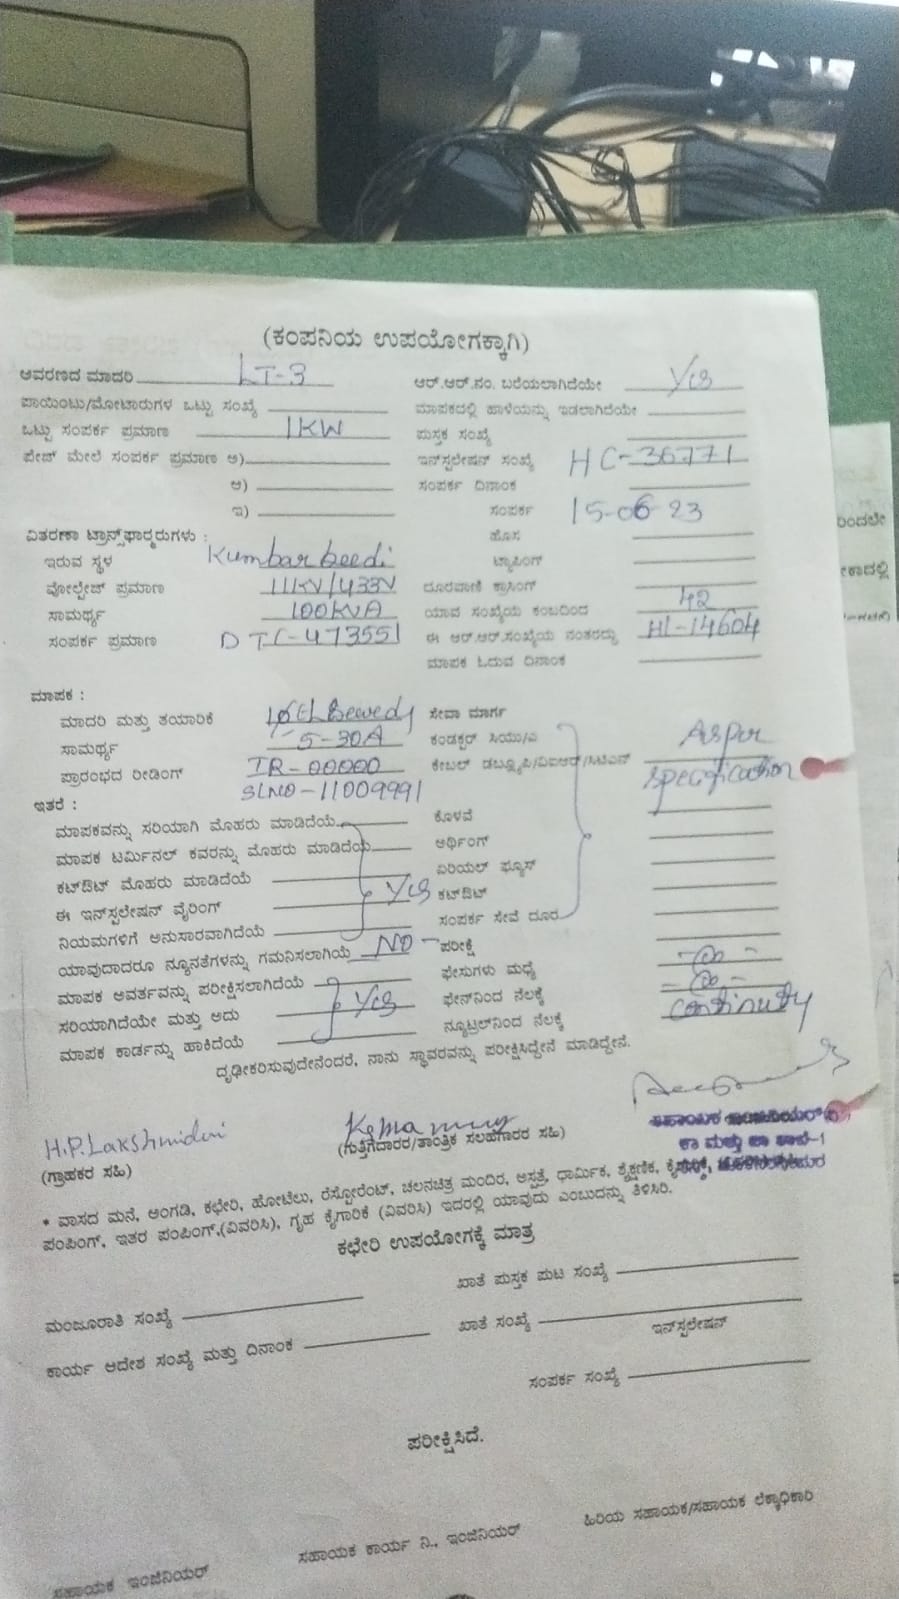 (ಕಂಪನಿಯ ಉಪಯೋಗಕ್ಕಾಗಿ)
ಆವರಣದ ಮಾದರಿ LT-3 ಆರ್.ಆರ್.ನಂ. ಬರೆಯಲಾಗಿದೆಯೇ Yes
ಪಾಯಿಂಟು/ಮೋಟಾರುಗಳ ಒಟ್ಟು ಸಂಖ್ಯೆ ಮಾಪಕದಲ್ಲಿ ಹಾಳೆಯನ್ನು ಇಡಲಾಗಿದೆಯೇ
ಒಟ್ಟು ಸಂಪರ್ಕ ಪ್ರಮಾಣ 1KW ಪುಸ್ತಕ ಸಂಖ್ಯೆ
ಫೇಜ್ ಮೇಲೆ ಸಂಪರ್ಕ ಪ್ರಮಾಣ ಅ) ಇನ್‌ಸ್ಟಲೇಷನ್ ಸಂಖ್ಯೆ HC-36771
ಆ) ಸಂಪರ್ಕ ದಿನಾಂಕ
ಇ) ಸಂಪರ್ಕ 15-06-23
ವಿತರಣಾ ಟ್ರಾನ್ಸ್‌ಫಾರ್ಮರುಗಳು : ಹೊಸ
ಇರುವ ಸ್ಥಳ Kumbar beedi ಟ್ಯಾಪಿಂಗ್
ವೋಲ್ಟೇಜ್ ಪ್ರಮಾಣ 11KV/433V ದೂರವಾಣಿ ಕ್ರಾಸಿಂಗ್
ಸಾಮರ್ಥ್ಯ 100KVA ಯಾವ ಸಂಖ್ಯೆಯ ಕಂಬದಿಂದ 42
ಸಂಪರ್ಕ ಪ್ರಮಾಣ DTC-473551 ಈ ಆರ್.ಆರ್.ಸಂಖ್ಯೆಯ ನಂತರದ್ದು HL-14604
ಮಾಪಕ ಓದುವ ದಿನಾಂಕ
ಮಾಪಕ :
ಮಾದರಿ ಮತ್ತು ತಯಾರಿಕೆ ಸೇವಾ ಮಾರ್ಗ
ಸಾಮರ್ಥ್ಯ 5-30A ಕಂಡಕ್ಟರ್ ಸಿಯು/ಎ Asper
ಪ್ರಾರಂಭದ ರೀಡಿಂಗ್ IR-00000 ಕೇಬಲ್ ಡಬ್ಲ್ಯೂಪಿ/ವಿಐಆರ್/ಸಿಟಿಎಸ್ specification
SLNO-11009991
ಇತರೆ :
ಮಾಪಕವನ್ನು ಸರಿಯಾಗಿ ಮೊಹರು ಮಾಡಿದೆಯೆ ಕೊಳವೆ
ಮಾಪಕ ಟರ್ಮಿನಲ್ ಕವರನ್ನು ಮೊಹರು ಮಾಡಿದೆಯೆ ಅರ್ಥಿಂಗ್
ಕಟ್‌ಔಟ್ ಮೊಹರು ಮಾಡಿದೆಯೆ ಏರಿಯಲ್ ಫ್ಯೂಸ್
ಈ ಇನ್‌ಸ್ಟಲೇಷನ್ ವೈರಿಂಗ್ Yes ಕಟ್‌ಔಟ್
ನಿಯಮಗಳಿಗೆ ಅನುಸಾರವಾಗಿದೆಯೆ ಸಂಪರ್ಕ ಸೇವೆ ದೂರ
ಯಾವುದಾದರೂ ನ್ಯೂನತೆಗಳನ್ನು ಗಮನಿಸಲಾಗಿಯೆ NO ಪರೀಕ್ಷೆ
ಮಾಪಕ ಆವರ್ತವನ್ನು ಪರೀಕ್ಷಿಸಲಾಗಿದೆಯೆ ಫೇಸುಗಳು ಮಧ್ಯೆ
ಸರಿಯಾಗಿದೆಯೇ ಮತ್ತು ಅದು Yes ಫೇಸ್‌ನಿಂದ ನೆಲಕ್ಕೆ
ಮಾಪಕ ಕಾರ್ಡನ್ನು ಹಾಕಿದೆಯೆ ನ್ಯೂಟ್ರಲ್‌ನಿಂದ ನೆಲಕ್ಕೆ continuity
ದೃಢೀಕರಿಸುವುದೇನೆಂದರೆ, ನಾನು ಸ್ಥಾವರವನ್ನು ಪರೀಕ್ಷಿಸಿದ್ದೇನೆ ಮಾಡಿದ್ದೇನೆ.
H.P.Lakshmidevi
(ಗ್ರಾಹಕರ ಸಹಿ) (ಗುತ್ತಿಗೆದಾರರ/ತಾಂತ್ರಿಕ ಸಲಹೆಗಾರರ ಸಹಿ)
ಸಹಾಯಕ ಇಂಜಿನಿಯರ್
ಕಾ ಮತ್ತು ಪಾ ಶಾಖೆ-1
* ವಾಸದ ಮನೆ, ಅಂಗಡಿ, ಕಛೇರಿ, ಹೋಟೆಲು, ರೆಸ್ಟೋರೆಂಟ್, ಚಲನಚಿತ್ರ ಮಂದಿರ, ಆಸ್ಪತ್ರೆ, ಧಾರ್ಮಿಕ, ಶೈಕ್ಷಣಿಕ,
ಪಂಪಿಂಗ್, ಇತರ ಪಂಪಿಂಗ್,(ವಿವರಿಸಿ), ಗೃಹ ಕೈಗಾರಿಕೆ (ವಿವರಿಸಿ) ಇದರಲ್ಲಿ ಯಾವುದು ಎಂಬುದನ್ನು ತಿಳಿಸಿರಿ.
ಕಛೇರಿ ಉಪಯೋಗಕ್ಕೆ ಮಾತ್ರ
ಮಂಜೂರಾತಿ ಸಂಖ್ಯೆ ಖಾತೆ ಪುಸ್ತಕ ಪುಟ ಸಂಖ್ಯೆ
ಕಾರ್ಯ ಆದೇಶ ಸಂಖ್ಯೆ ಮತ್ತು ದಿನಾಂಕ ಖಾತೆ ಸಂಖ್ಯೆ
ಇನ್‌ಸ್ಟಲೇಷನ್
ಸಂಪರ್ಕ ಸಂಖ್ಯೆ
ಪರೀಕ್ಷಿಸಿದೆ.
ಸಹಾಯಕ ಇಂಜಿನಿಯರ್ ಸಹಾಯಕ ಕಾರ್ಯ ನಿ., ಇಂಜಿನಿಯರ್ ಹಿರಿಯ ಸಹಾಯಕ/ಸಹಾಯಕ ಲೆಕ್ಕಾಧಿಕಾರಿ